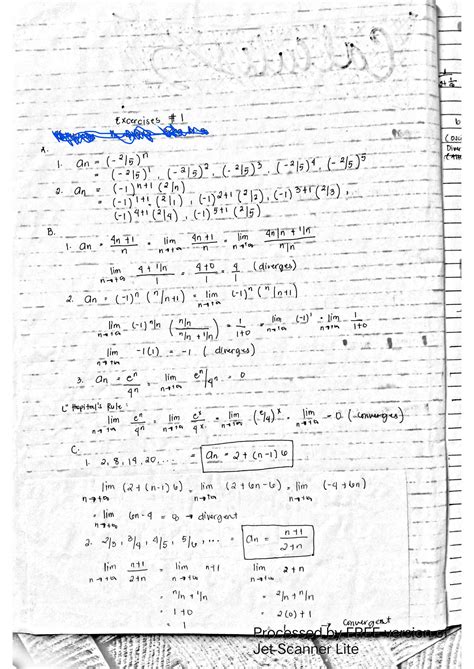 Calculus
Excercises #1
A.
1. an = (-2/5)^n
= (-2/5)^1, (-2/5)^2, (-2/5)^3, (-2/5)^4, (-2/5)^5
2. an = (-1)^n+1 (2/n)
= (-1)^1+1 (2/1), (-1)^2+1 (2/2), (-1)^3+1 (2/3),
(-1)^4+1 (2/4), (-1)^5+1 (2/5)
B.
1. an = 4n+1/n = lim n→+∞ 4n+1/n = lim n→+∞ 4n/n + 1/n / n/n
lim n→+∞ 4+1/n / 1 = 4+0/1 = 4/1 (diverges)
2. an = (-1)^n (n/n+1) = lim n→+∞ (-1)^n (n/n+1)
lim n→+∞ (-1)^n/n (n/n / n/n + 1/n) = 1/1+0 = lim n→+∞ (-1)^1 = lim n→+∞ 1/1+0
lim n→+∞ -1(1) = -1 (diverges)
3. an = e^n/4^n = lim n→+∞ e^n/4^n = 0
L'Hopital's Rule: lim n→+∞ e^n/4^n = lim n→+∞ e^x/4^x = lim n→+∞ (e/4)^x = lim n→+∞ = 0 (converges)
C.
1. 2, 8, 14, 20, ... = an = 2 + (n-1) 6
lim n→+∞ (2 + (n-1) 6) = lim n→+∞ (2 + 6n - 6) = lim n→+∞ (-4 + 6n)
= lim n→+∞ 6n-4 = ∞ → divergent
2. 2/3, 3/4, 4/5, 5/6, ... = an = n+1/2+n
lim n→+∞ n+1/2+n = lim n→+∞ n+1 lim n→+∞ 2+n
= n/n + 1/n = 2/n + n/n
= 1+0 = 2(0)+1
= 1 = 1 convergent
Processed by FREE version of
Jet-Scanner Lite